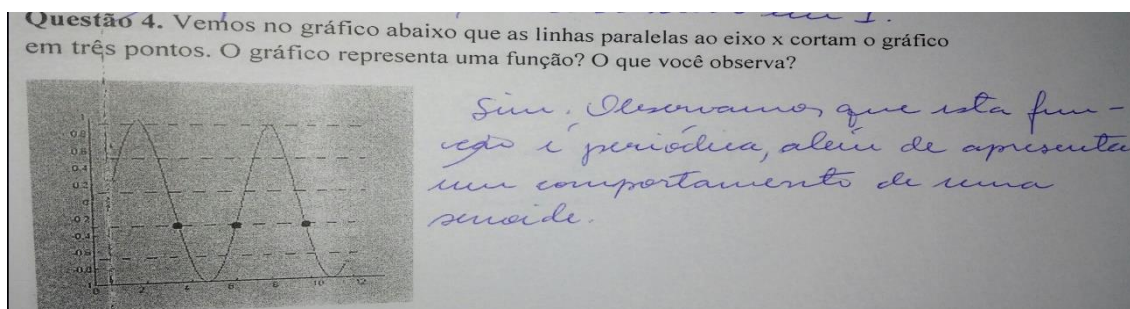 Questão 4. Vemos no gráfico abaixo que as linhas paralelas ao eixo x cortam o gráfico
em três pontos. O gráfico representa uma função? O que você observa?
Sim. Observamos que esta fun-
ção é periódica, além de apresenta
um comportamento de uma
senoide.
1
0.8
0.6
0.4
0.2
0
0.2
-0.4
-0.8
1
0 2 4 6 8 10 12